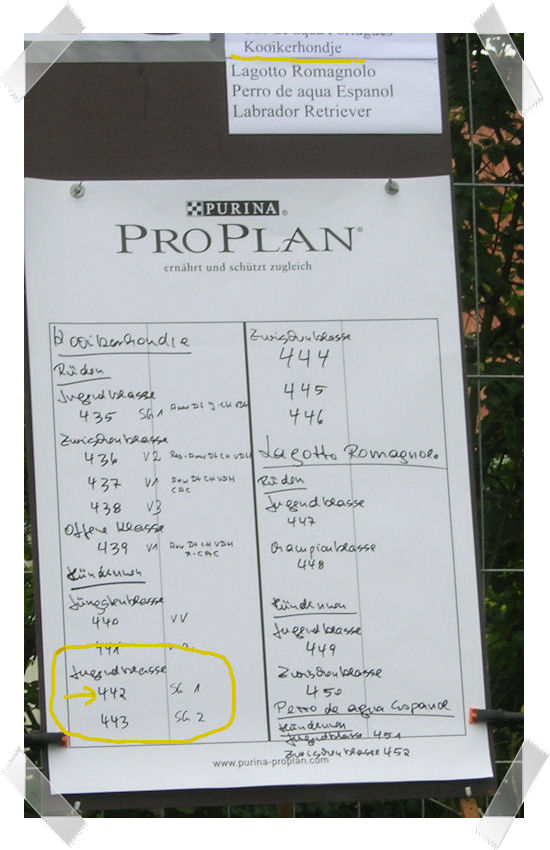 Kooikerhondje
Lagotto Romagnolo
Perro de aqua Espanol
Labrador Retriever
PURINA®
PROPLAN®
ernährt und schützt zugleich
Kooikerhondje
Rüden
Jugendklasse
435 SG 1 Anw Dt J-CH VDH
Zwischenklasse
436 V2 Res-Anw Dt CH VDH
437 V1 Anw Dt CH VDH
CAC
438 V3
Offene Klasse
439 V1 Anw Dt CH VDH
R-CAC
Hündinnen
Jüngstenklasse
440 VV
441
Jugendklasse
442 SG 1
443 SG 2
Zwischenklasse
444
445
446
Lagotto Romagnolo
Rüden
Jugendklasse
447
Championklasse
448
Hündinnen
Jugendklasse
449
Zwischenklasse
450
Perro de aqua Espanol
Hündinnen
Jugendklasse 451
Zwischenklasse 452
www.purina-proplan.com